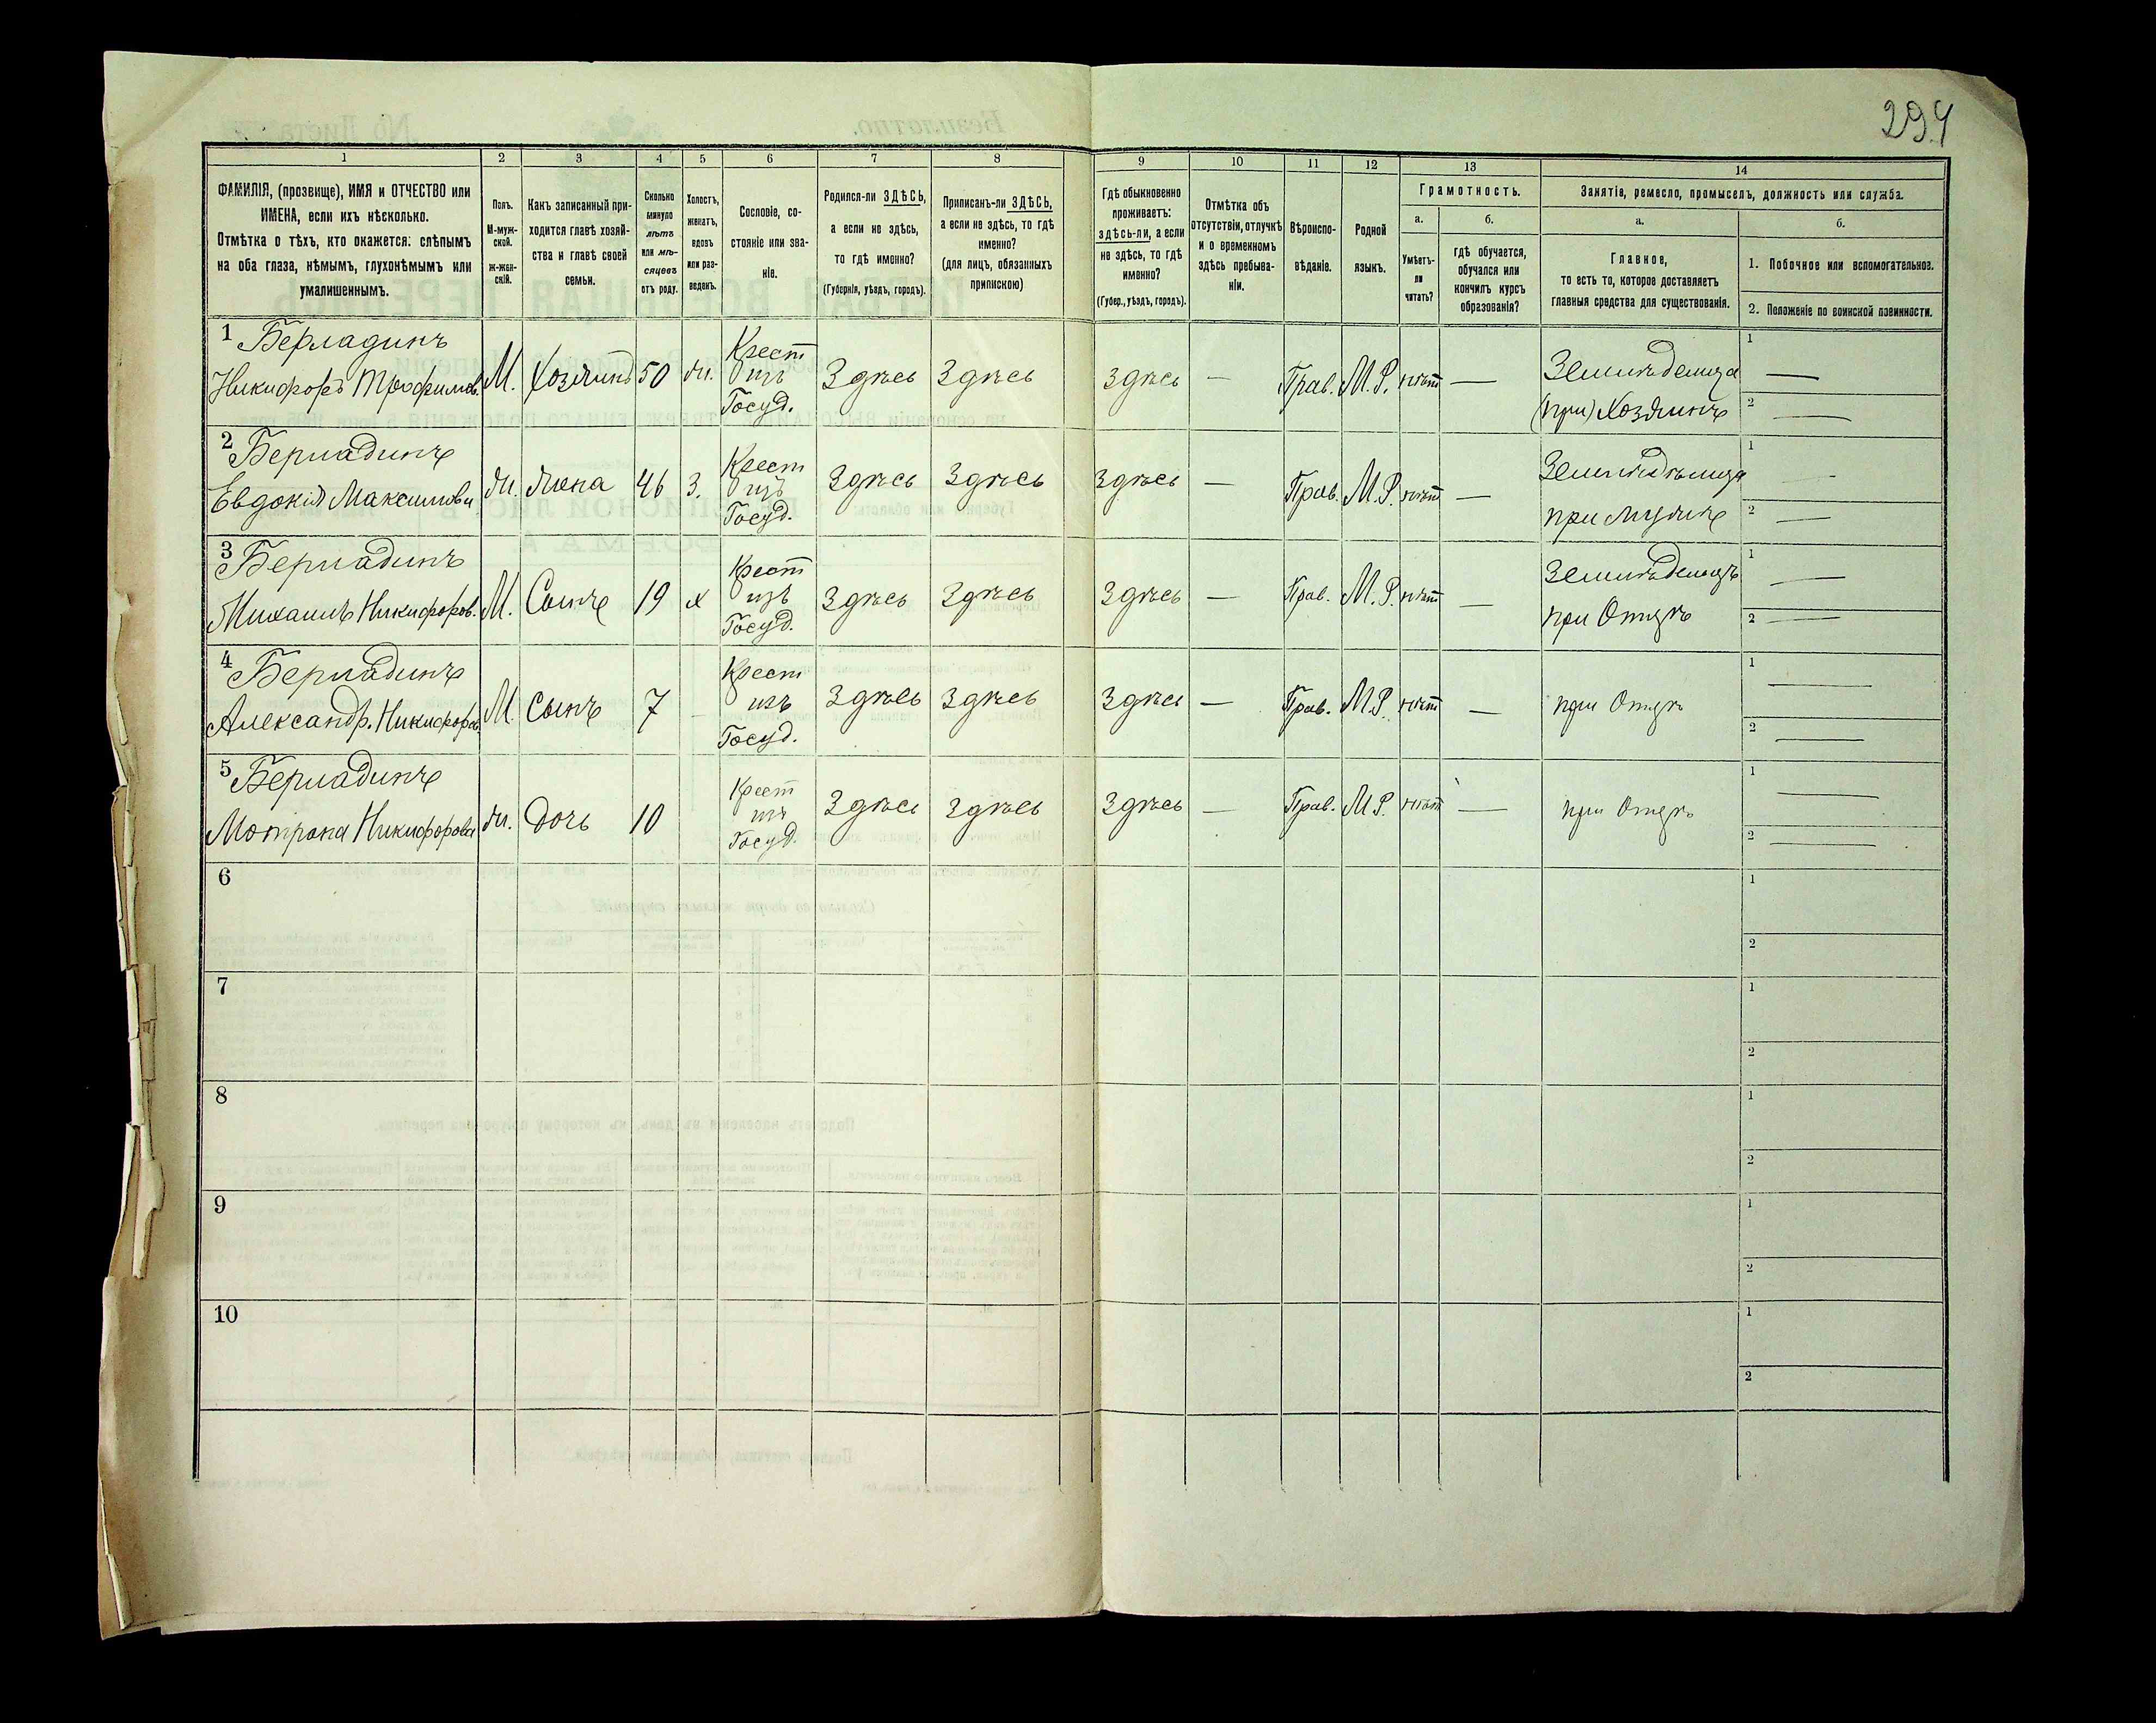 294
1 2 3 4 5 6 7 8 9 10 11 12 13 14
ФАМИЛІЯ, (прозвище), ИМЯ и ОТЧЕСТВО или
ИМЕНА, если ихъ нѣсколько.
Отмѣтка о тѣхъ, кто окажется: слѣпымъ
на оба глаза, нѣмымъ, глухонѣмымъ или
умалишеннымъ.
Полъ.
М-муж-
ской.
Ж-жен-
скій.
Какъ записанный при-
ходится главѣ хозяй-
ства и главѣ своей
семьи.
Сколько
минуло
лѣтъ
или мѣ-
сяцевъ
отъ роду.
Холостъ,
женатъ,
вдовъ
или раз-
веденъ.
Сословіе, со-
стояніе или зва-
ніе.
Родился-ли ЗДѢСЬ,
а если не здѣсь,
то гдѣ именно?
(Губернія, уѣздъ, городъ).
Приписанъ-ли ЗДѢСЬ,
а если не здѣсь, то гдѣ
именно?
(для лицъ, обязанныхъ
припискою)
Гдѣ обыкновенно
проживаетъ:
здѣсь-ли, а если
не здѣсь, то гдѣ
именно?
(Губер., уѣздъ, городъ).
Отмѣтка объ
отсутствіи, отлучкѣ
и о временномъ
здѣсь пребыва-
ніи.
Вѣроиспо-
вѣданіе.
Родной
языкъ.
Грамотность.
а.
Умѣетъ-
ли
читать?
б.
гдѣ обучается,
обучался или
кончилъ курсъ
образованія?
Занятіе, ремесло, промыселъ, должность или служба.
а.
Главное,
то есть то, которое доставляетъ
главныя средства для существованія.
б.
1. Побочное или вспомогательное.
2. Положеніе по воинской повинности.
1 Берладинъ
Никифоръ Трофимов. М. Хозяинъ 50 ж. Крест изъ Госуд. Здѣсь Здѣсь Здѣсь — Прав. М.Р. нѣт — Земледелица (при) Хозяинѣ
1 —
2 —
2 Берладинъ
Евдокія Максимова ж. жена 46 З. Крест изъ Госуд. Здѣсь Здѣсь Здѣсь — Прав. М.Р. нѣт — при Мужѣ
1 —
2 —
3 Берладинъ
Михаилъ Никифоров. М. Сынъ 19 х Крест изъ Госуд. Здѣсь Здѣсь Здѣсь — Прав. М.Р. нѣт — при Отцѣ
1 —
2 —
4 Берладинъ
Александр. Никифоров. М. Сынъ 7 — Крест изъ Госуд. Здѣсь Здѣсь Здѣсь — Прав. М.Р. нѣт — при Отцѣ
1 —
2 —
5 Берладинъ
Мотрона Никифорова ж. дочь 10 Крест изъ Госуд. Здѣсь Здѣсь Здѣсь — Прав. М.Р. нѣт — при Отцѣ
1 —
2 —
6
1
2
7
1
2
8
1
2
9
1
2
10
1
2